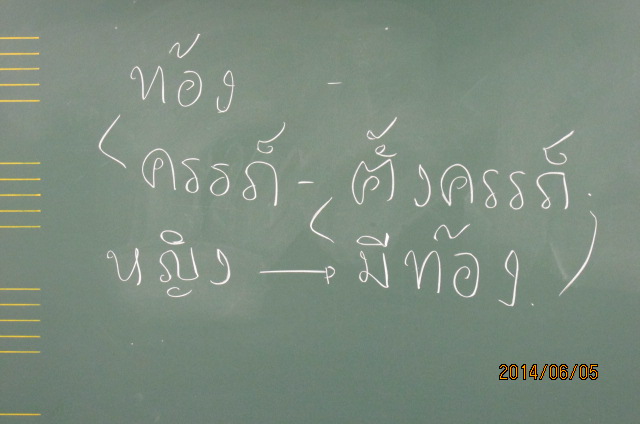 ท้อง -
( ครรภ์ - ตั้งครรภ์.
หญิง → ( มีท้อง. )
2014/06/05